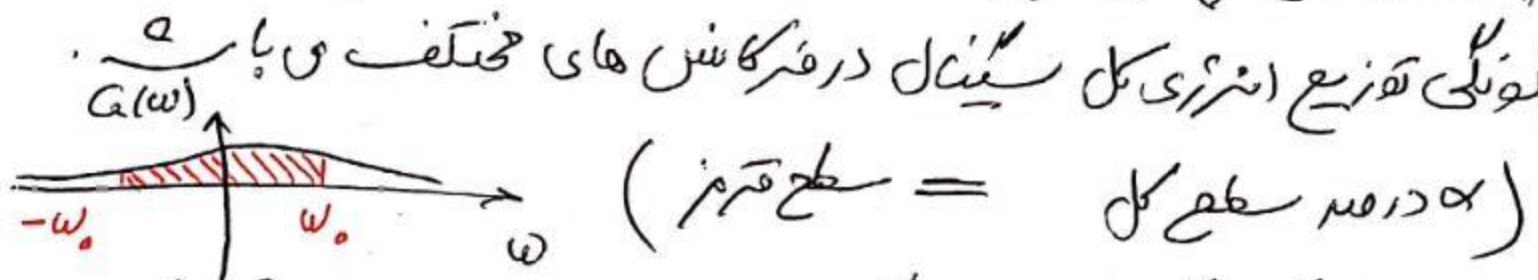 توزیع انرژی کل سیگنال در فرکانس های مختلف می باشد.
G(ω)
(α درصد سطح کل = سطح قرمز)
-ω₀ ω₀ ω